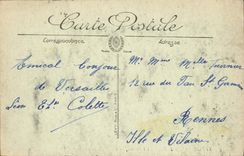 Carte Postale
Correspondance
Adresse
Amical Bonjour
de Versailles
Colette
Mr Mme Mlle
12 rue du Tan St
Rennes
Ille et Vilaine